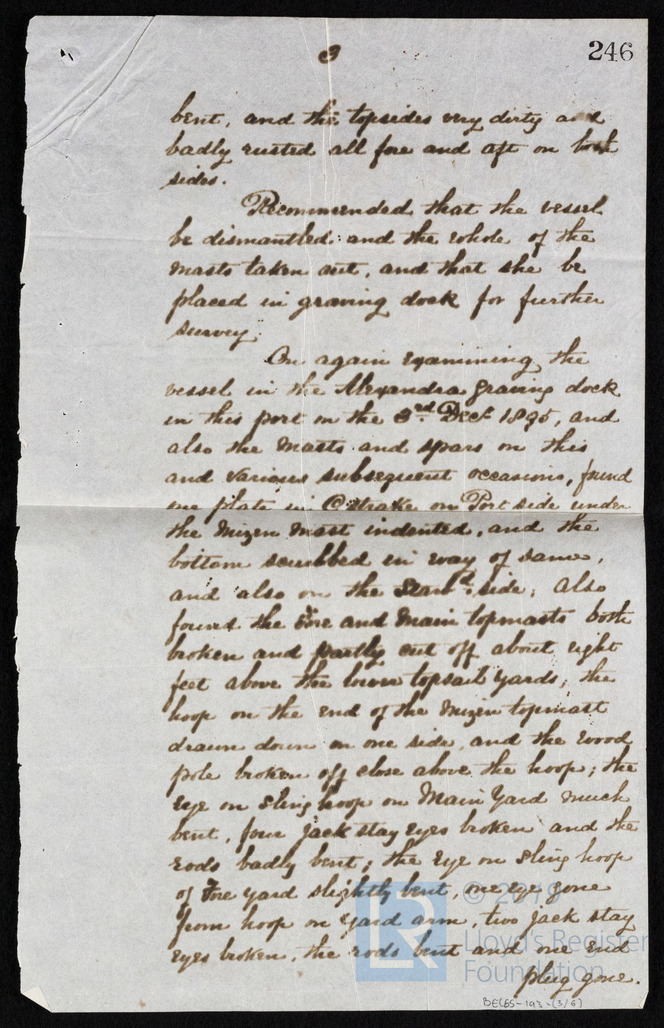 3
246
bent, and the topsides very dirty and
badly rusted all fore and aft on both
sides.
Recommended that the vessel
be dismantled: and the whole of the
masts taken out, and that she be
placed in graving dock for further
survey.
On again examining the
vessel in the Alexandra graving dock
in this port on the 3rd Decr 1895, and
also the masts and spars on this
and various subsequent occasions, found
one plate in C strake on Port side under
the Mizen Mast indented, and the
bottom scubbed in way of same,
and also on the Starbd side; also
found the Fore and Main topmasts both
broken and partly cut off about eight
feet above the lower topsail yards; the
hoop on the end of the Mizen topmast
drawn down on one side, and the wood
pole broken off close above the hoop; the
eye on sling hoop on Main Yard much
bent, four Jack stay eyes broken and the
rods badly bent; the eye on sling hoop
of Fore yard slightly bent, one eye gone
from hoop on yard arm, two jack stay
eyes broken, the rods bent and one end
plug gone.
LR
Lloyd's Register
Foundation
BEC65-193-(3/6)